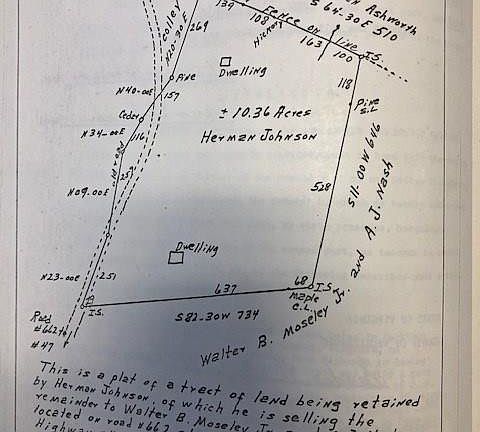 Ashworth
S 64-30E 510
139
108
Fence on Line
Hickory
163
100
I.S.
colley
N20-30E
269
Dwelling
118
Pine
S.L
Pine
N40-00E
157
Cedar
± 10.36 Acres
Herman Johnson
N34-00E
116
S11-00W 646
and A.J. Nash
528
N09-00E
259
Dwelling
N23-00E
251
637
68
I.S.
maple
C.L.
I.S.
S82-30W 734
Road
#662 to
#47
Walter B. Moseley Jr.
This is a plat of a tract of land being retained
by Herman Johnson, of which he is selling the
remainder to Walter B. Moseley Jr.
located on road #662
Highway